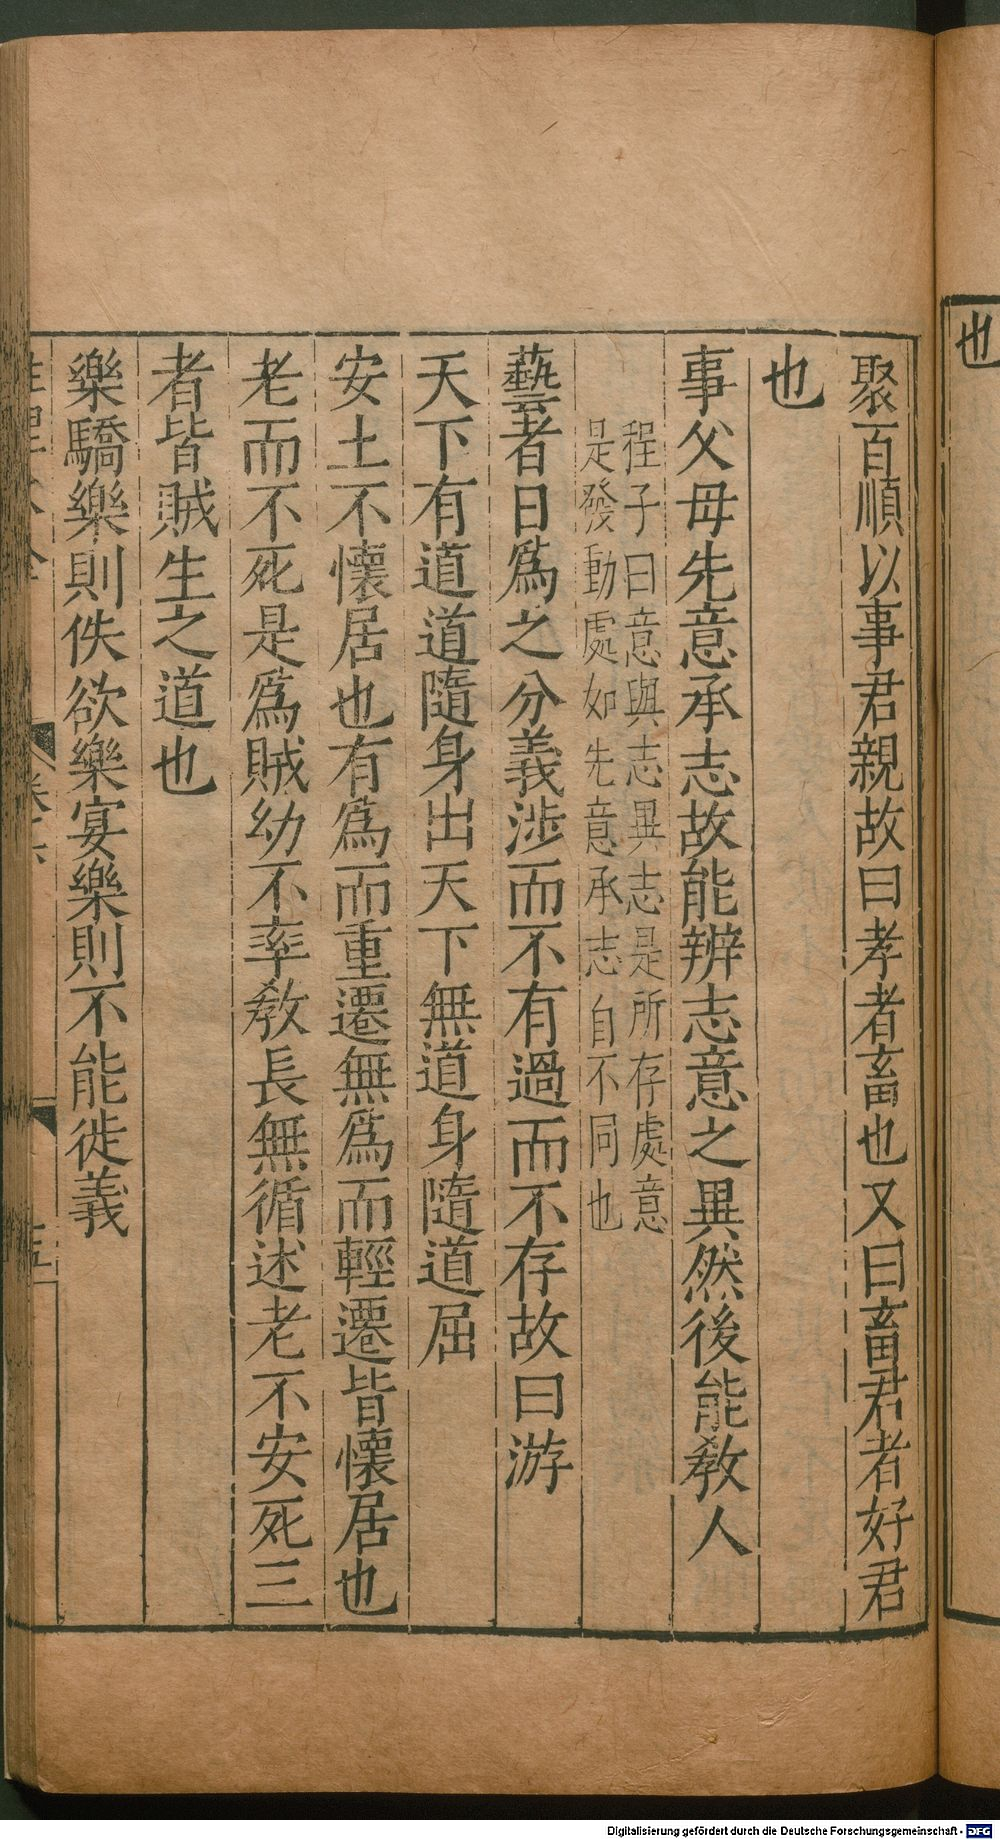 也
聚百順以事君親故曰孝者畜也又曰畜君者好君
也
事父母先意承志故能辨志意之異然後能教人
程子曰意與志異志是所存處意
是發動處如先意承志自不同也
藝者日爲之分義涉而不有過而不存故曰游
天下有道道隨身出天下無道身隨道屈
安土不懷居也有爲而重遷無爲而輕遷皆懷居也
老而不死是爲賊幼不率教長無循述老不安死三
者皆賊生之道也
樂驕樂則佚欲樂宴樂則不能徙義
Digitalisierung gefördert durch die Deutsche Forschungsgemeinschaft - DFG